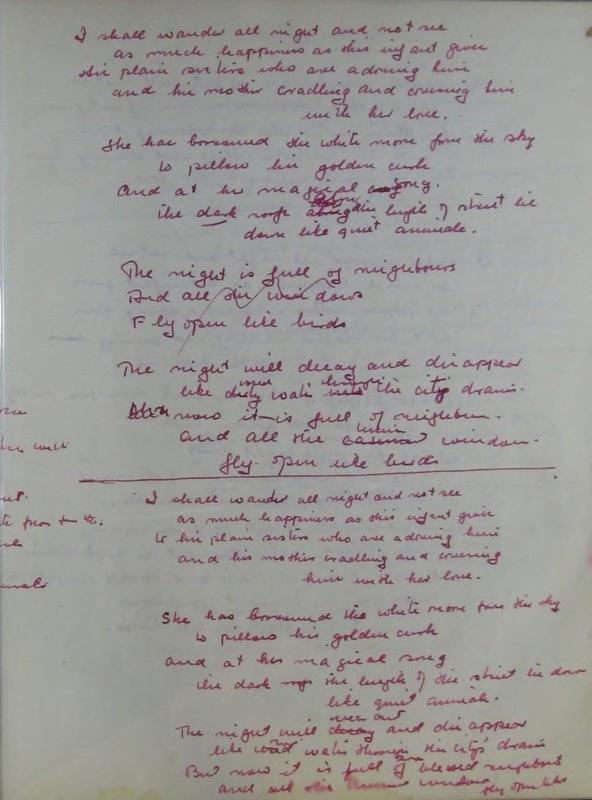 I shall wander all night and not see
as much happiness as this infant gives
His plain sisters who are adoring him
and his mother cradling and crooning him
with her love.
She has borrowed the white moon from the sky
to pillow his golden curls
And at her magical song.
The dark roofs along the length of street lie
down like quiet animals.
The night is full of neighbours
And all the windows
Fly open like birds
The night will decay and disappear
like dirty water into the city drain.
now it is full of neighbours.
and all the windows.
fly open like birds
I shall wander all night and not see
as much happiness as this infant gives
to his plain sisters who are adoring him
and his mother cradling and crooning
him with her love.
She has borrowed the white moon from the sky
to pillow his golden curls
and at her magical song
the dark roofs the length of the street lie down
like quiet animals.
wear out
The night will decay and disappear
like water through the city's drain
But now it is full of blessed neighbours
and all windows fly open like